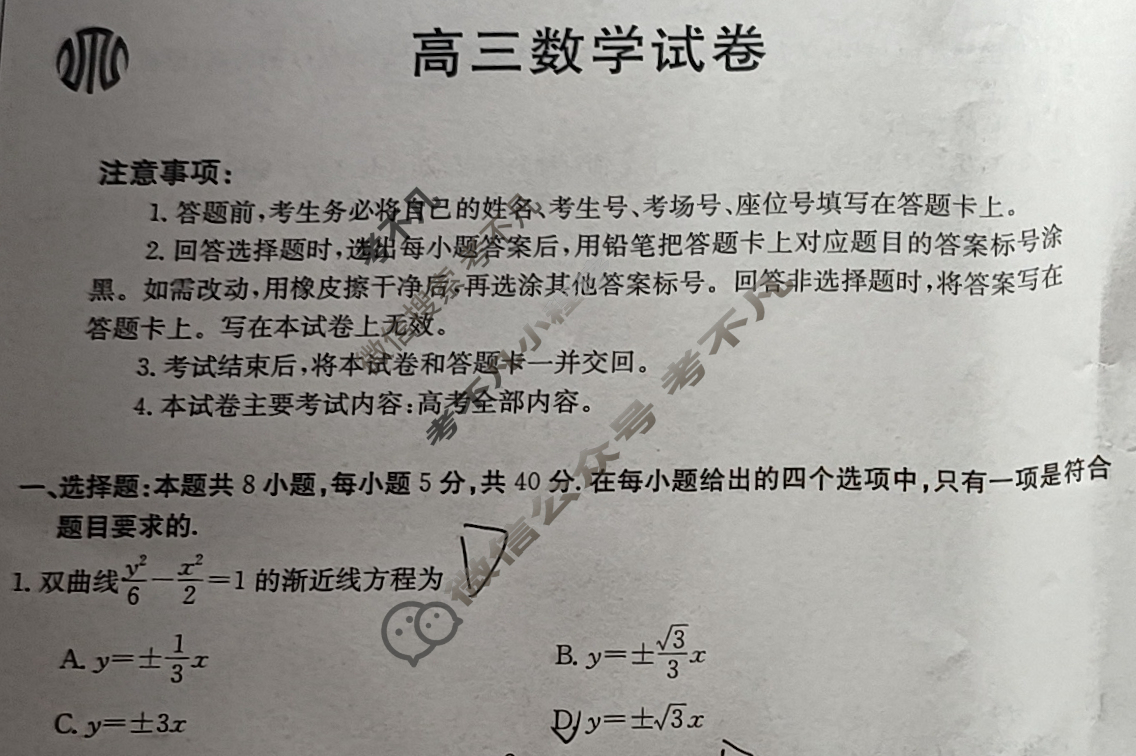 高三数学试卷
注意事项:
1. 答题前,考生务必将自己的姓名、考生号、考场号、座位号填写在答题卡上。
2. 回答选择题时,选出每小题答案后,用铅笔把答题卡上对应题目的答案标号涂
黑。如需改动,用橡皮擦干净后,再选涂其他答案标号。回答非选择题时,将答案写在
答题卡上。写在本试卷上无效。
3. 考试结束后,将本试卷和答题卡一并交回。
4. 本试卷主要考试内容:高考全部内容。
一、选择题:本题共 8 小题,每小题 5 分,共 40 分. 在每小题给出的四个选项中,只有一项是符合
题目要求的.
1. 双曲线 y²/6 − x²/2 = 1 的渐近线方程为 D
A. y=±1/3 x
B. y=±√3/3 x
C. y=±3x
D. y=±√3 x
考不凡
微信搜索 考不凡
考不凡小程
微信公众号 考不凡